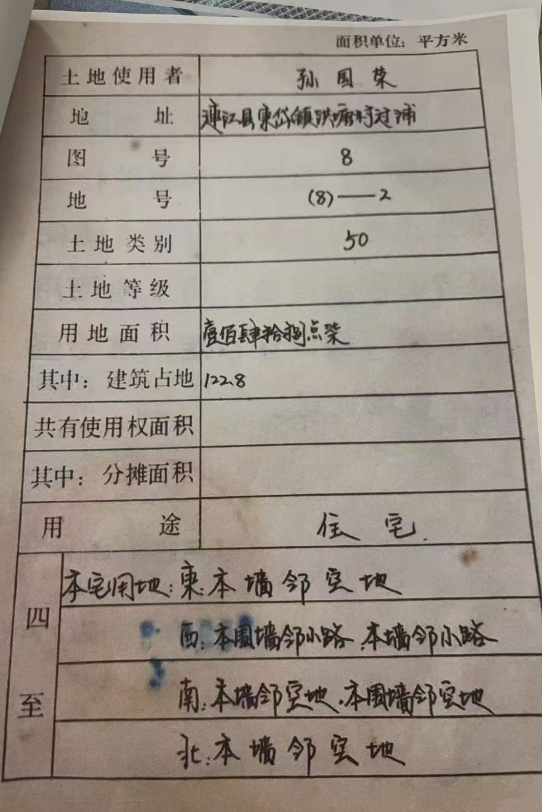 面积单位：平方米
土地使用者 孙国荣
地址 连江县东岱镇洪塘村过浦
图号 8
地号 (8)——2
土地类别 50
土地等级
用地面积 壹佰肆拾捌点柒
其中：建筑占地 122.8
共有使用权面积
其中：分摊面积
用途 住宅
四至
本宅用地：东：本墙邻空地
西：本围墙邻小路、本墙邻小路
南：本墙邻空地、本围墙邻空地
北：本墙邻空地